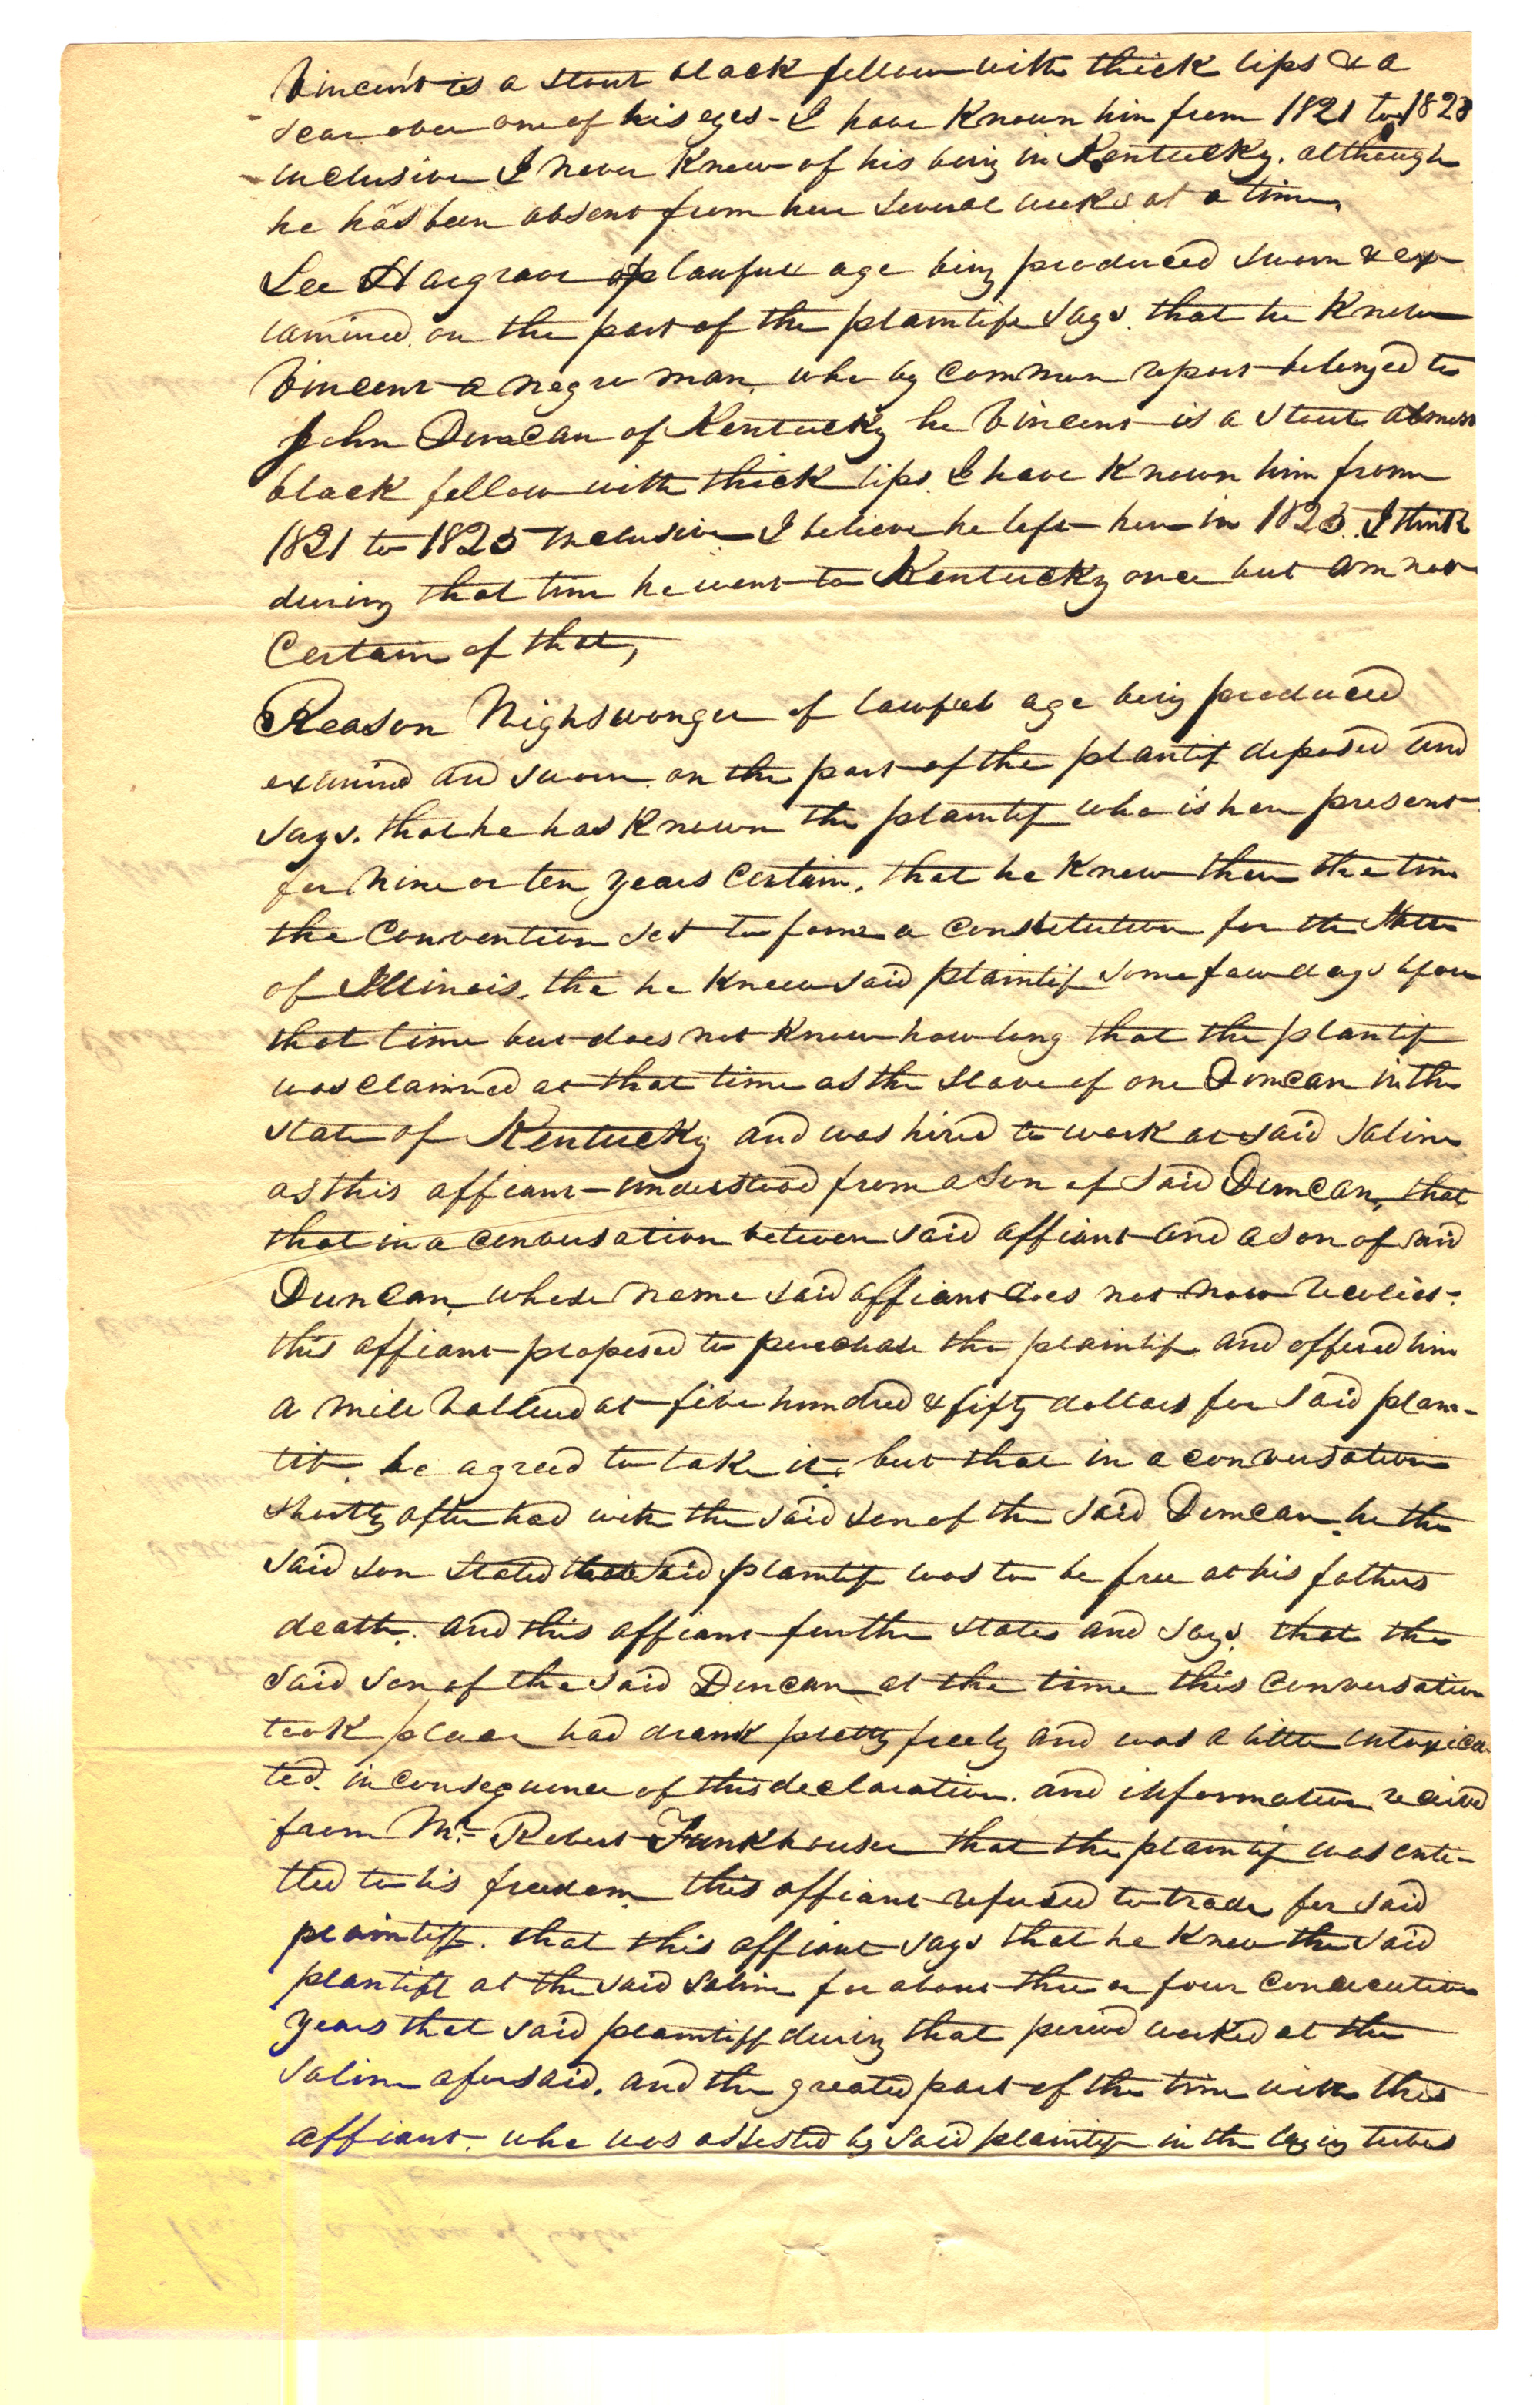 Vincent is a stout black fellow with thick lips & a
scar over one of his eyes - I have Known him from 1821 to 1823
inclusive I never Knew of his being in Kentucky. although
he has been absent from here several weeks at a time,
Lee Hargrave of lawful age being produced sworn & ex-
amined on the part of the plaintife says. that he Knew
Vincent a negro man. who by common report belonged to
John Duncan of Kentucky he Vincent is a stout
black fellow with thick lips. I have Known him from
1821 to 1825 Inclusive I believe he left here in 1825. I think
during that time he went to Kentucky once but am not
Certain of that,
Reason Nighswonger of lawful age being produced
examined and sworn on the part of the plantif deposed and
says. that he has Known the plaintif who is here present
for Nine or ten years Certain. that he Knew them the time
the Convention set to form a Constitution for the State
of Illinois. the he Knew said plaintif some few days before
that time but does not Know how long that the plantif
was claimed at that time as the slave of one Duncan in the
state of Kentucky and was hired to work at said Saline
as this affiant understood from a son of said Duncan, that
that in a conversation between said affiant and a son of said
Duncan, whose name said affiant does not now recolect.
this affiant proposed to purchase the plaintif and offered him
a mile valued at five hundred & fifty dollars for said plain-
tif. he agreed to take it. but that in a conversation
shortly after had with the said son of the said Duncan. he the
said son stated that said plaintif was to be free at his fathers
death. and this affiant further states and says. that the
said son of the said Duncan at the time this Conversation
took place had drank pretty freely and was a little intoxica-
ted. in consequence of this declaration. and information recived
from Mr. Robert Funkhouser that the plaintif was enti-
tled to his freedom this affiant refused to trade for said
plaintiff. that this affiant says that he Knew the said
plantift at the said Saline for about three or four Consecutive
years that said plaintiff during that period worked at the
Saline afersaid. and the greated part of the time with this
affiant. who was assisted by said plaintif in the laying tubes